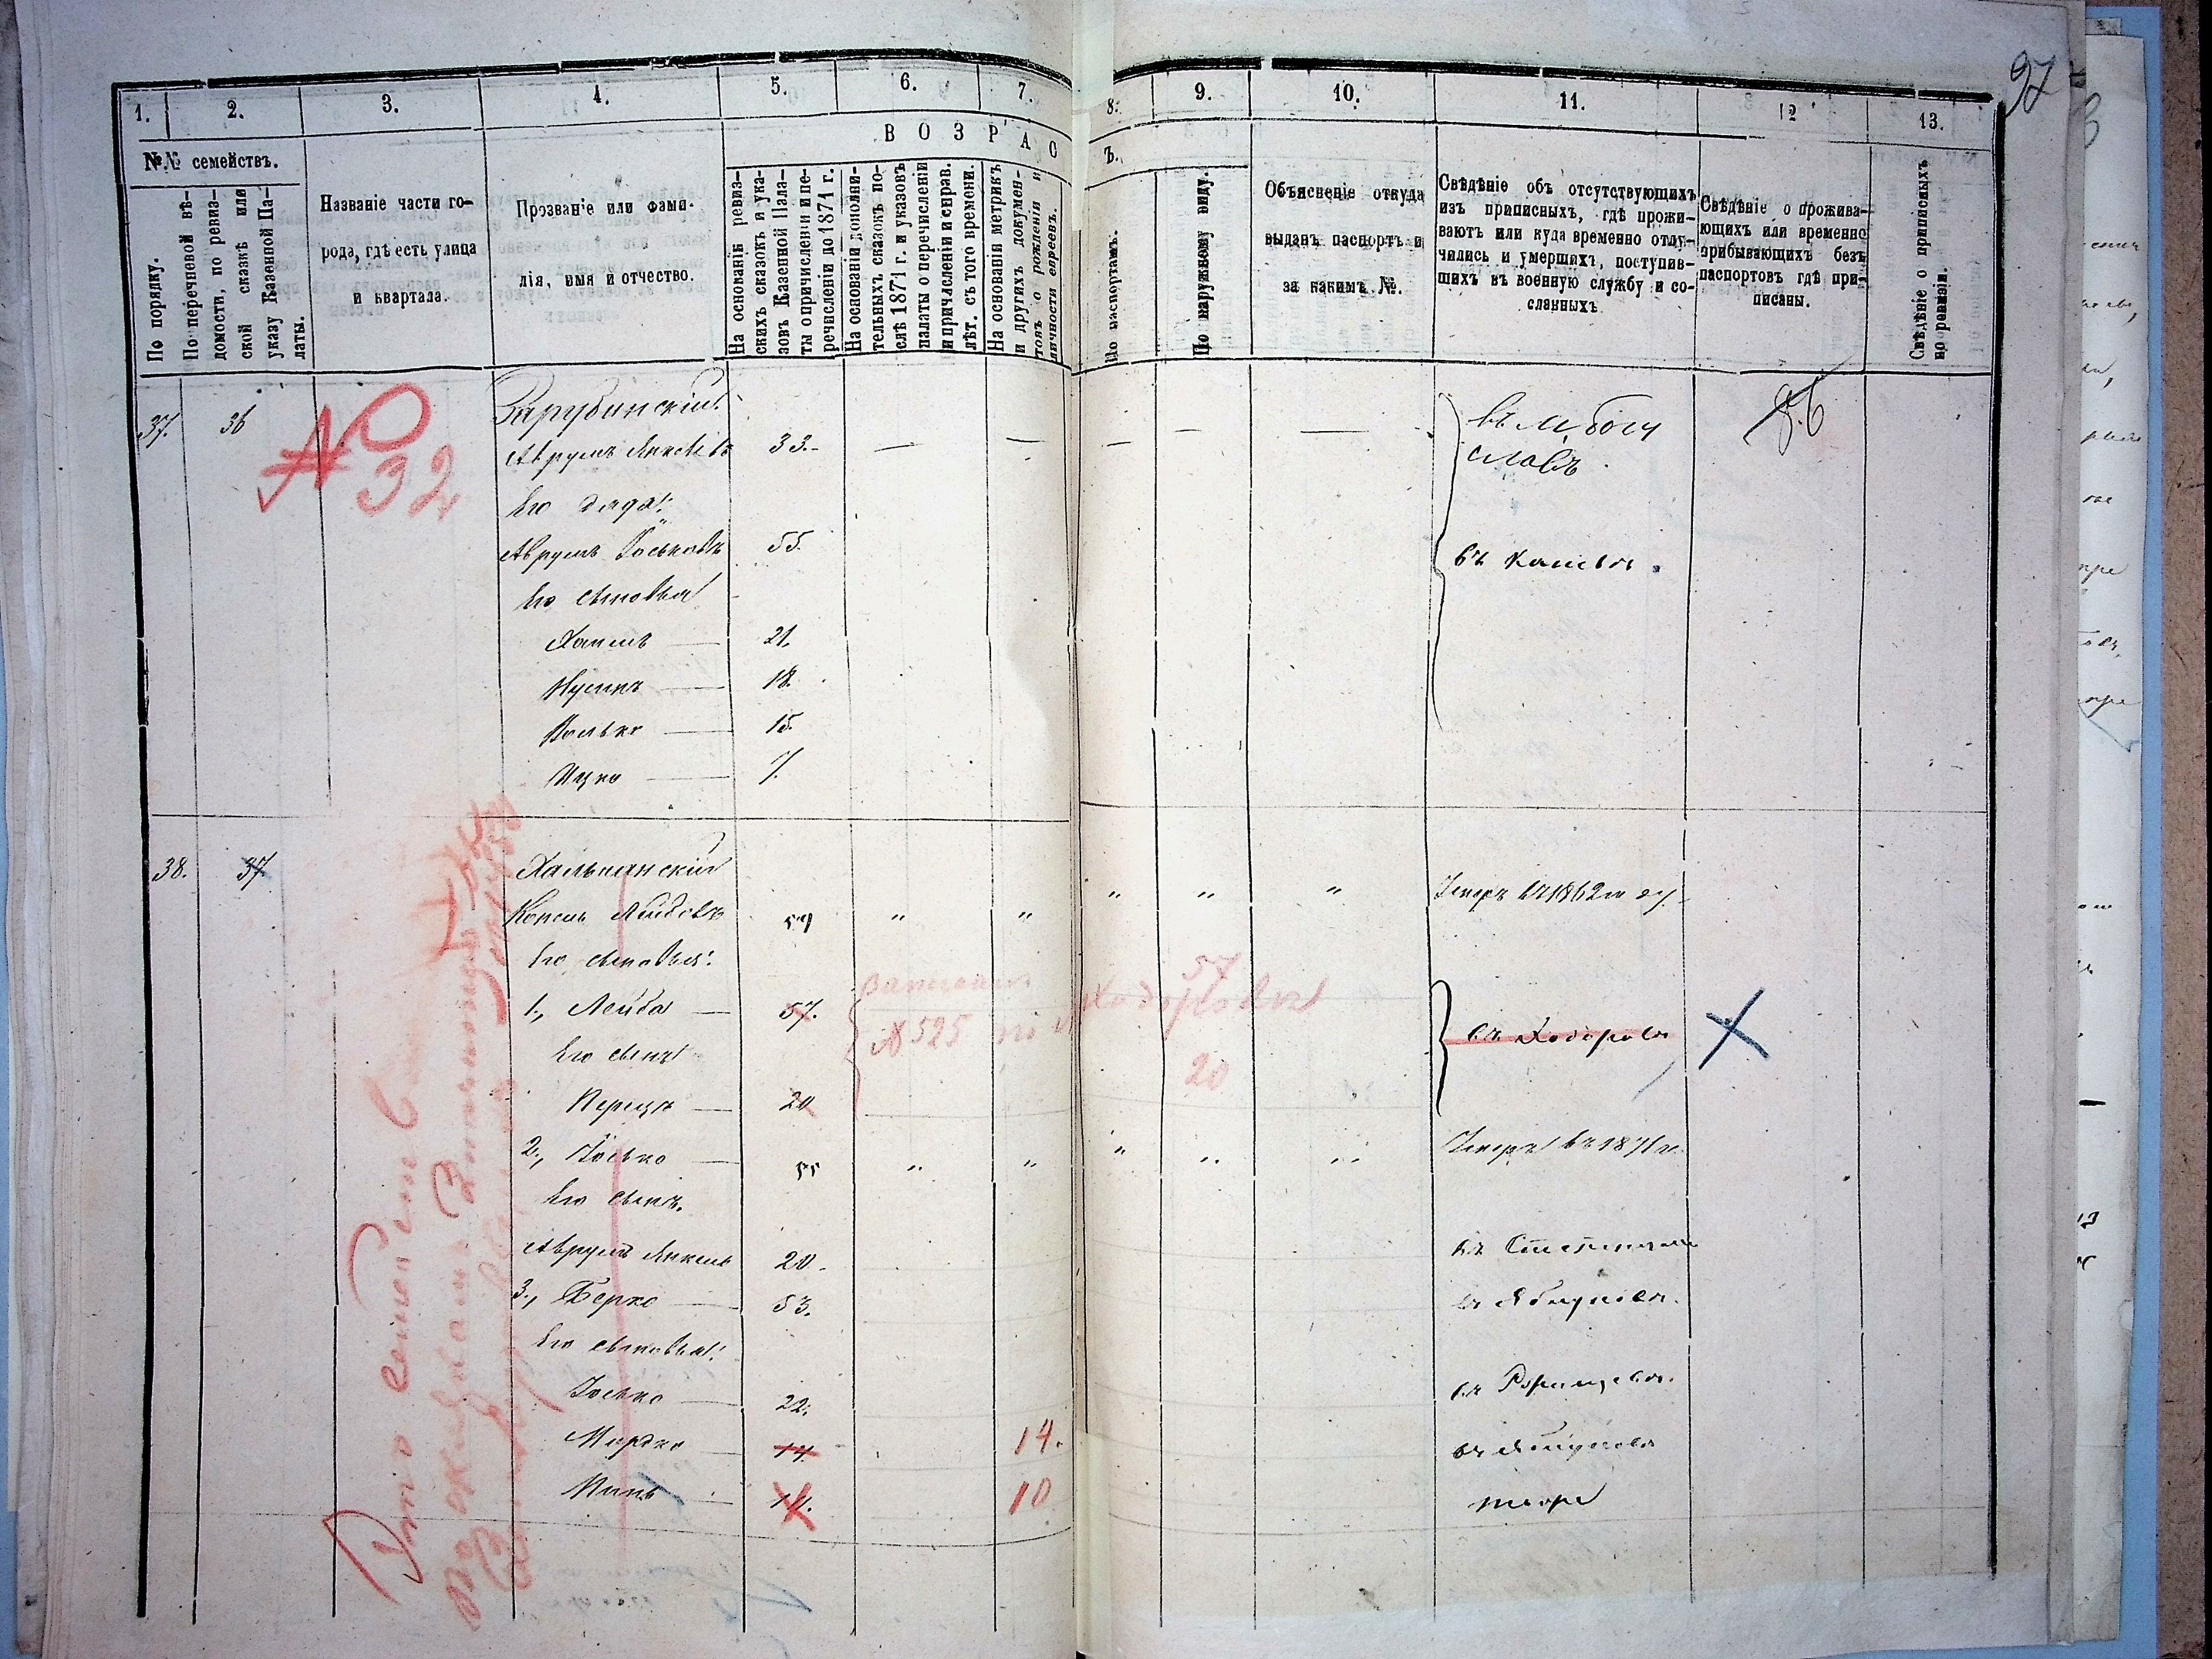 97
1.
2.
3.
4.
5.
6.
7.
8.
9.
10.
11.
12
13.
ВОЗРАС
Ъ.
№№ семействъ.
По порядку.
По перечневой вѣ-
домости, по ревиз-
ской сказкѣ или
указу Казенной Па-
латы.
Названіе части го-
рода, гдѣ есть улица
и квартала.
Прозваніе или фами-
лія, имя и отчество.
На основаніи ревиз-
скихъ сказокъ и ука-
зовъ Казенной Пала-
ты о причисленіи и пе-
речисленіи до 1871 г.
На основаніи дополни-
тельныхъ сказокъ по-
слѣ 1871 г. и указовъ
палаты о перечисленіи
и причисленіи и справ.
лѣт. съ того времени.
На основаніи метрикъ
и другихъ докумен-
товъ о рожденіи и
личности евреевъ.
По паспортамъ.
По наружному виду.
Объясненіе откуда
выданъ паспортъ и
за какимъ №.
Свѣдѣніе объ отсутствующихъ
изъ приписныхъ, гдѣ прожи-
ваютъ или куда временно отлу-
чились и умершихъ, поступив-
шихъ въ военную службу и со-
сланныхъ
Свѣдѣніе о прожива-
ющихъ или временно
прибывающихъ безъ
паспортовъ гдѣ при-
писаны.
Свѣдѣніе о приписныхъ
по ревизіи.
37. 36 Зарубинскій
№ 32
Аврумъ Янкелевъ 33. въ м. Богу
славѣ.
Его дядя:
Аврумъ Іоськовъ 55. въ Каневѣ.
Его сыновья
Хаимъ 21.
Нусинъ 18.
Волько 15.
Ицко 7.
38. 37. Хальпанскій
Копель Лейбовъ 59 " " " " " Умеръ въ 1862 м году.
Его сыновья:
1., Лейба 57. 57 въ Ходоровѣ
Записанъ
№ 525 по м Ходоровкѣ
Его сынъ
Перецъ 20 20
2., Іосько 55 " " " " " Умеръ въ 1871 г.
Его сынъ.
Аврумъ Янкель 20. въ Степанцахъ
3., Берко 53. въ Яблуновѣ.
Его сыновья:
Іосько 22. въ Ржищевѣ.
Мордко 14. въ Яблуновѣ
Пинь 10 тоже
Это семейство
проживаетъ